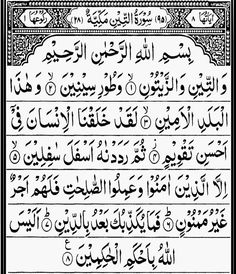 اٰیاتها ٨ (٩٥) سُوْرَةُ التِّيْنِ مَكِّيَّةٌ (٢٨) رُكُوْعُهَا ١
بِسْمِ اللهِ الرَّحْمٰنِ الرَّحِيْمِ
وَالتِّيْنِ وَالزَّيْتُوْنِ ۝١ وَطُوْرِ سِيْنِيْنَ ۝٢ وَهٰذَا
الْبَلَدِ الْاَمِيْنِ ۝٣ لَقَدْ خَلَقْنَا الْاِنْسَانَ فِيْٓ
اَحْسَنِ تَقْوِيْمٍ ۝٤ ثُمَّ رَدَدْنٰهُ اَسْفَلَ سٰفِلِيْنَ ۝٥
اِلَّا الَّذِيْنَ اٰمَنُوْا وَعَمِلُوا الصّٰلِحٰتِ فَلَهُمْ اَجْرٌ
غَيْرُ مَمْنُوْنٍ ۝٦ فَمَا يُكَذِّبُكَ بَعْدُ بِالدِّيْنِ ۝٧ اَلَيْسَ
اللهُ بِاَحْكَمِ الْحٰكِمِيْنَ ۝٨